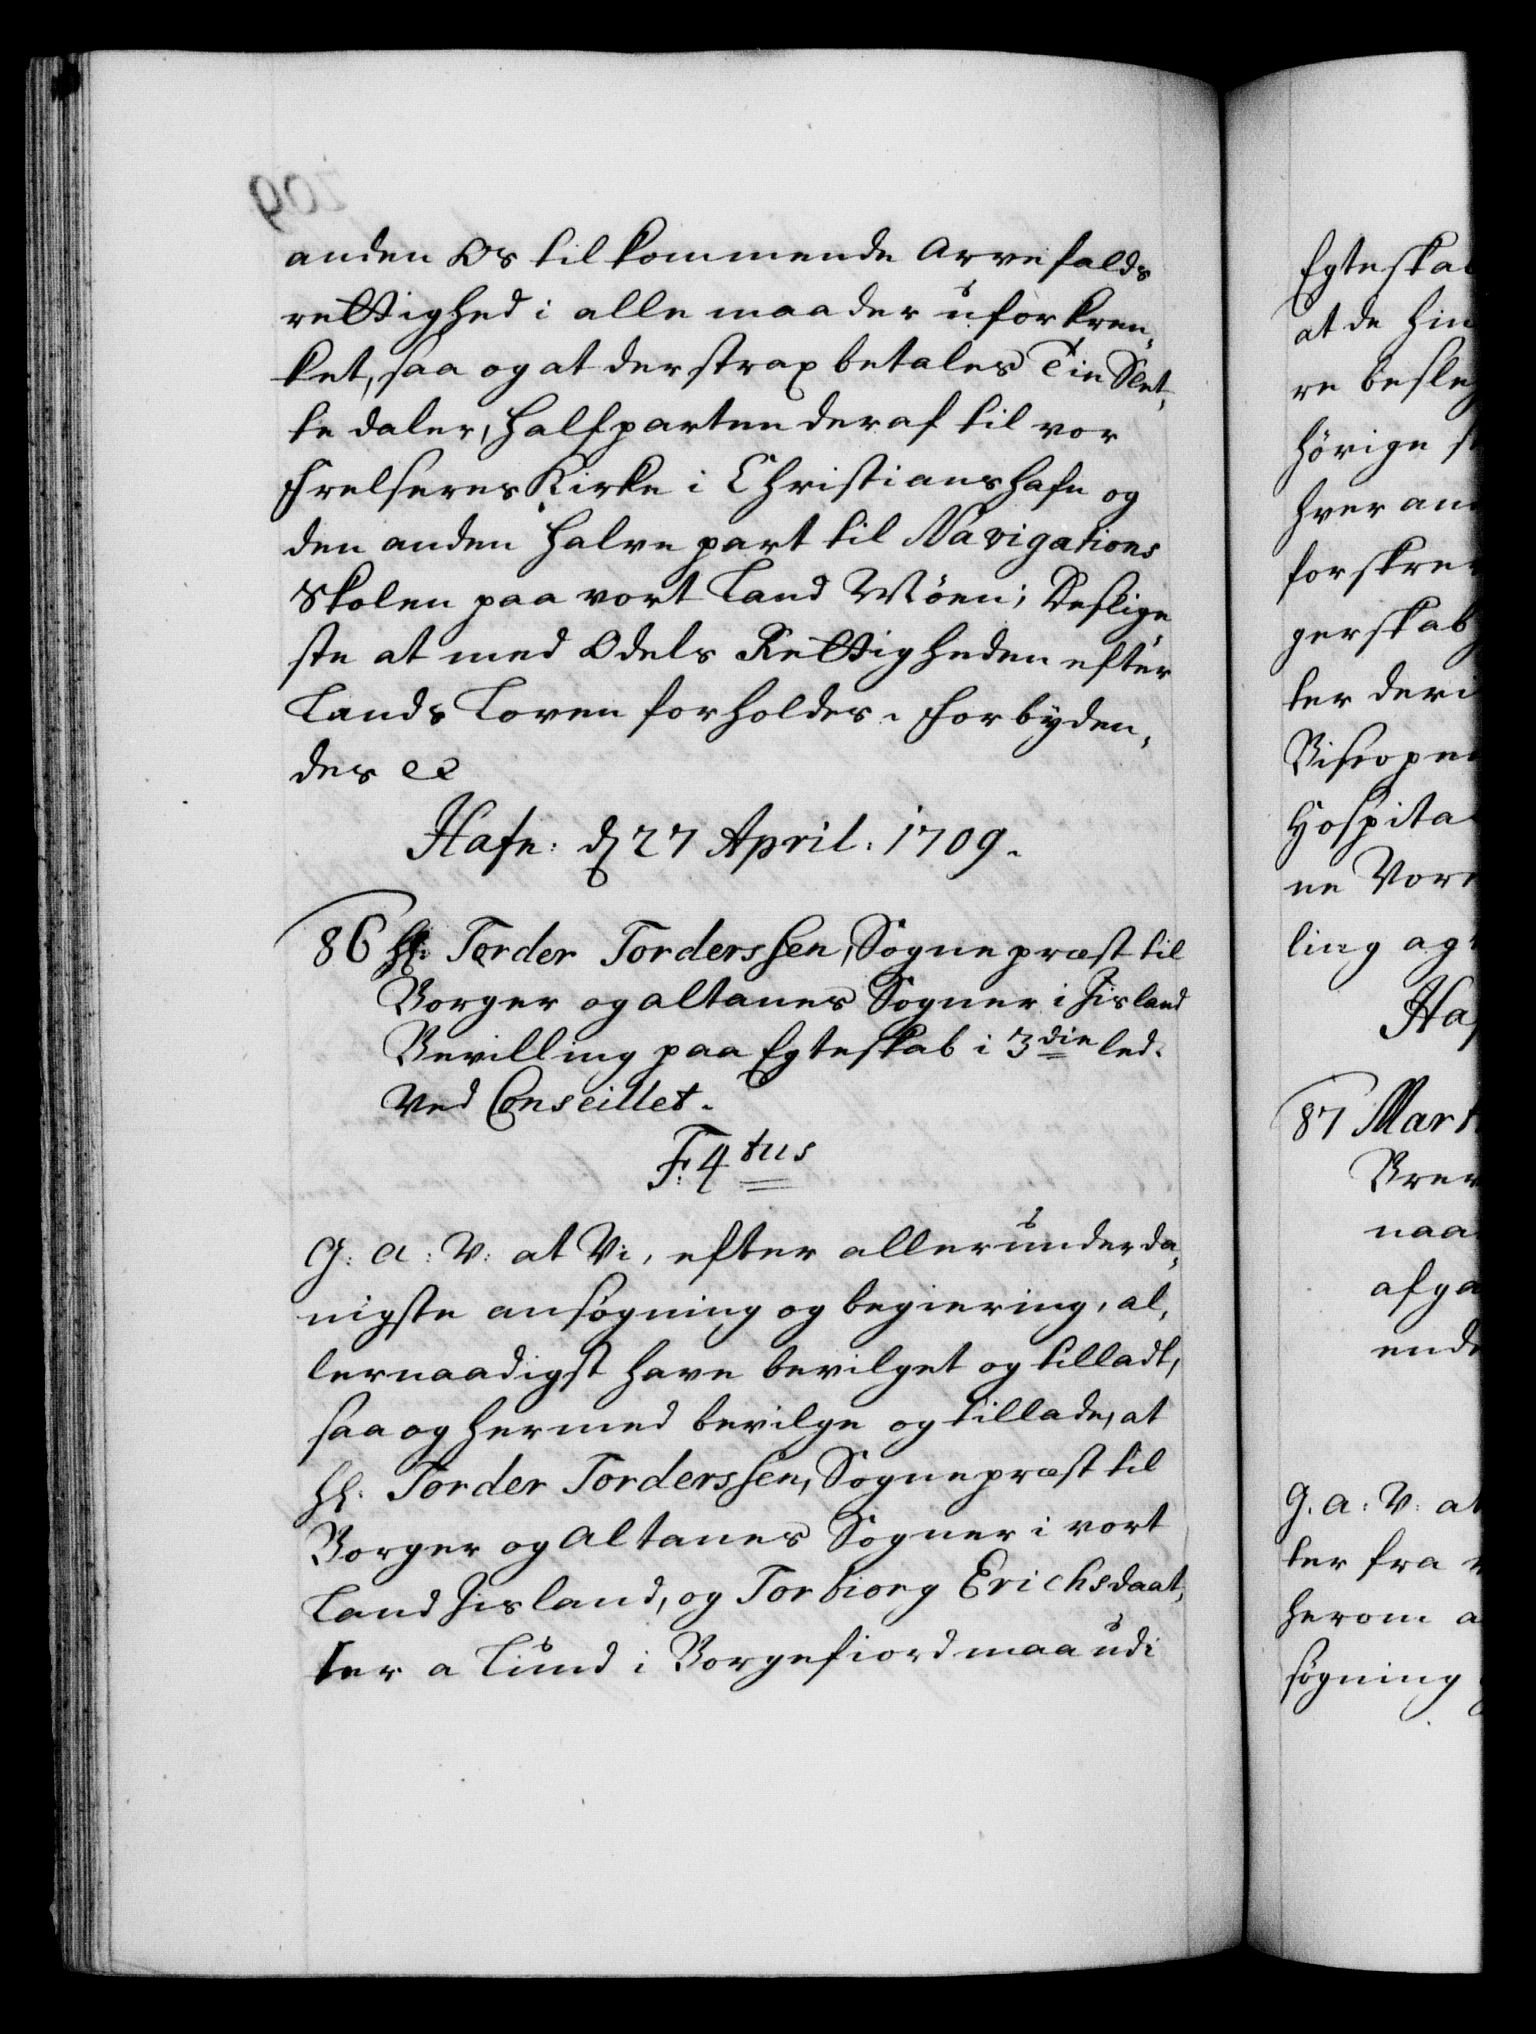 anden Os tilkommende Arvefalds
rettighed i alle maader uforkren¬
ket, saa og at der strax betales Tie Slet¬
te daler, Halfparten deraf til vor
Frelseres Kirke i Christianshafn og
den anden halve part til Navigations
Skolen paa vort Land Møen; Deslige
ste at med Odels Rettigheden efter
Lands Loven forholdes. Forbyden¬
des etc
Hafn: d 27 April: 1709.
86 Hr: Torder Torderssen, Sognepræst til
Borger og Altanes Sogner i Jisland
Bevilling paa Egteskab i 3die led.
Ved Conseillet.
F: 4tus
G: A: V: at Vi, efter allerunderda¬
nigste ansøgning og begiering, al¬
lernaadigst have bevilget og tilladt,
saa og hermed bevilge og tillade, at
Hr. Torder Torderssen, Sognepræst til
Borger og Altanes Sogner i vort
Land Jisland, og Torbiorg Erichsdaat¬
ter a Lund i Borgefiord maa udi
Egteskab
at de hin
re besleg
hörige
hver an
forskre
gerskab
ter deri
Biscopen
Hospita
ne Vor
ling ag
Haf
87 Mart
Brev
naa
afga
ende
G. A: V: at
ter fra
herom a
søgning
209